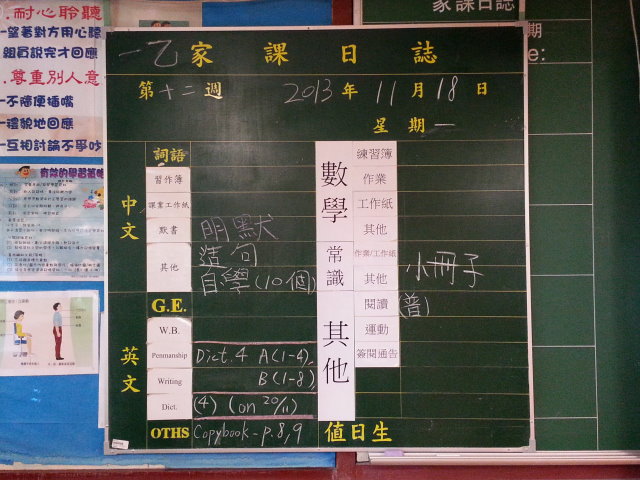 .耐心聆聽
望著對方用心聽
組員説完才回應
.尊重別人意
不隨便插嘴
禮貌地回應
互相討論不爭吵
有效的學習策略
家課日誌
期
e:
一乙家課日誌
第十二週 2013年11月18日
星期一
中文
詞語
習作簿
課業工作紙
默書 明默
其他 造句
自學(10個)
英文
G.E.
W.B.
Penmanship Dict. 4 A(1-4),
Writing B(1-8)
Dict. (4) (on 20/11)
OTHS Copybook - p.8,9
數學
練習簿
作業
工作紙
其他
常識
作業/工作紙
其他 小冊子
其他
閱讀 (普)
運動
簽閱通告
值日生